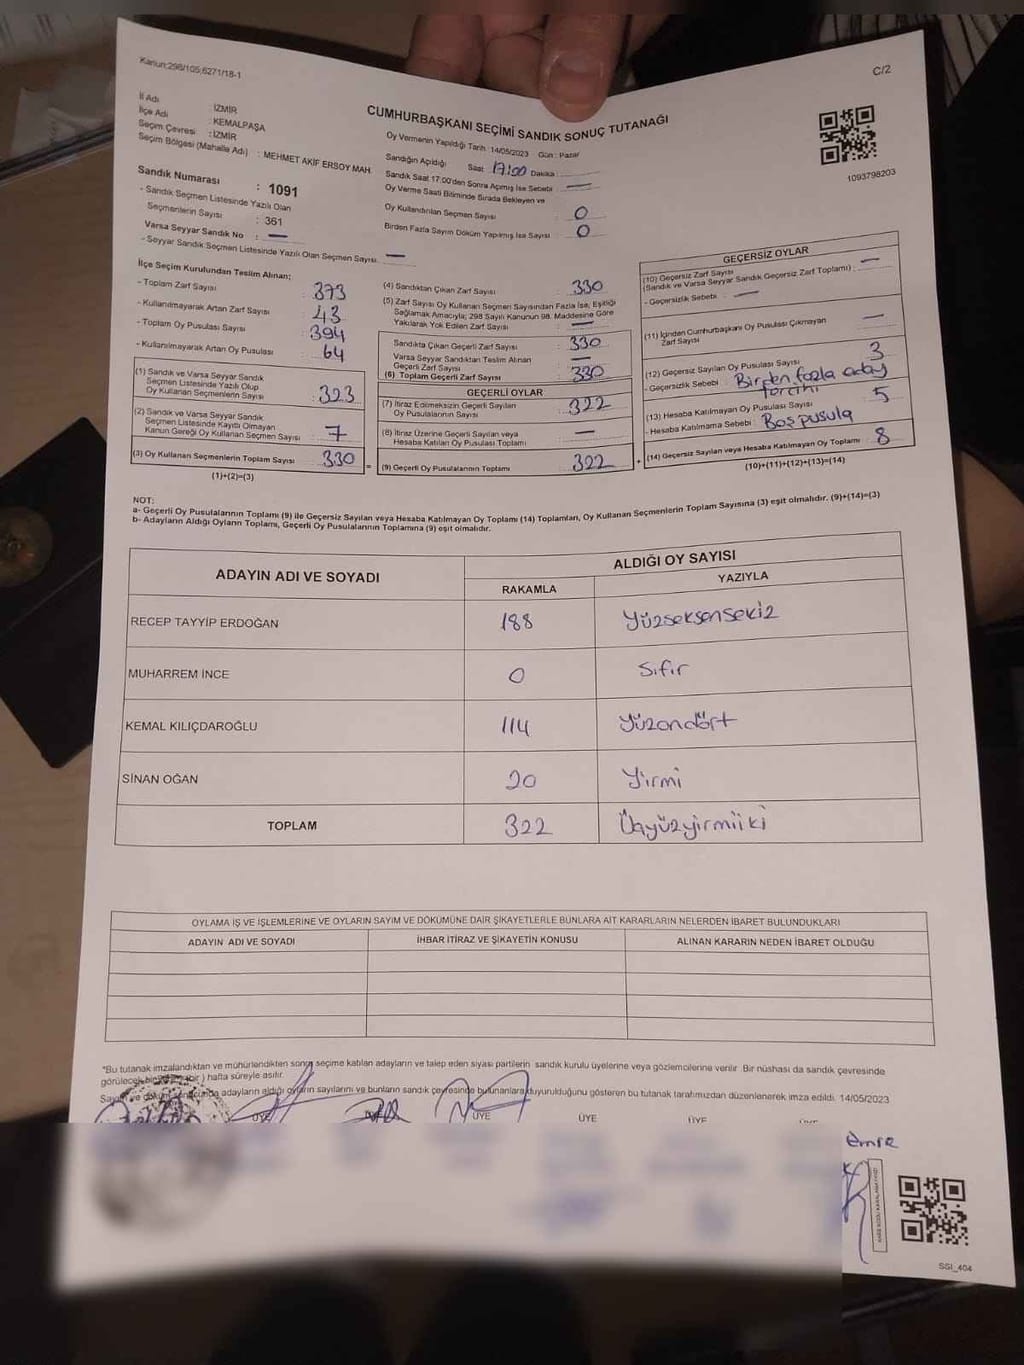 Kanun;298/105;6271/18-1
C/2
CUMHURBAŞKANI SEÇİMİ SANDIK SONUÇ TUTANAĞI
İl Adı : İZMİR
İlçe Adı : KEMALPAŞA
Seçim Çevresi : İZMİR
Seçim Bölgesi (Mahalle Adı) : MEHMET AKİF ERSOY MAH.
Sandık Numarası : 1091
- Sandık Seçmen Listesinde Yazılı Olan
Seçmenlerin Sayısı : 361
Varsa Seyyar Sandık No : —
- Seyyar Sandık Seçmen Listesinde Yazılı Olan Seçmen Sayısı: —
Oy Vermenin Yapıldığı Tarih : 14/05/2023 Gün : Pazar
Sandığın Açıldığı Saat 17:00 Dakika :
Sandık Saat 17:00'den Sonra Açımış İse Sebebi : —
Oy Verme Saati Bitiminde Sırada Bekleyen ve
Oy Kullandırılan Seçmen Sayısı : 0
Birden Fazla Sayım Döküm Yapımış İse Sayısı : 0
1093798203
İlçe Seçim Kurulundan Teslim Alınan;
- Toplam Zarf Sayısı : 373
- Kullanılmayarak Artan Zarf Sayısı : 43
- Toplam Oy Pusulası Sayısı : 394
- Kullanılmayarak Artan Oy Pusulası : 64
(1) Sandık ve Varsa Seyyar Sandık
Seçmen Listesinde Yazılı Olup
Oy Kullanan Seçmenlerin Sayısı : 323
(2) Sandık ve Varsa Seyyar Sandık
Seçmen Listesinde Kayıtlı Olmayan
Kanun Gereği Oy Kullanan Seçmen Sayısı : 7
(3) Oy Kullanan Seçmenlerin Toplam Sayısı : 330
(1)+(2)=(3)
(4) Sandıktan Çıkan Zarf Sayısı : 330
(5) Zarf Sayısı Oy Kullanan Seçmen Sayısından Fazla İse, Eşitliği
Sağlamak Amacıyla; 298 Sayılı Kanunun 98. Maddesine Göre
Yakılarak Yok Edilen Zarf Sayısı : —
Sandıkta Çıkan Geçerli Zarf Sayısı : 330
Varsa Seyyar Sandıktan Teslim Alınan
Geçerli Zarf Sayısı : —
(6) Toplam Geçerli Zarf Sayısı : 330
GEÇERLİ OYLAR
(7) İtiraz Edilmeksizin Geçerli Sayılan
Oy Pusulalarının Sayısı : 322
(8) İtiraz Üzerine Geçerli Sayılan veya
Hesaba Katılan Oy Pusulası Toplamı : —
(9) Geçerli Oy Pusulalarının Toplamı : 322
GEÇERSİZ OYLAR
(10) Geçersiz Zarf Sayısı
(Sandık ve Varsa Seyyar Sandık Geçersiz Zarf Toplamı) : —
- Geçersizlik Sebebi : —
(11) İçinden Cumhurbaşkanı Oy Pusulası Çıkmayan
Zarf Sayısı : —
(12) Geçersiz Sayılan Oy Pusulası Sayısı : 3
- Geçersizlik Sebebi : Birden fazla aday
tercihi
(13) Hesaba Katılmayan Oy Pusulası Sayısı : 5
- Hesaba Katılmama Sebebi : Boş pusula
(14) Geçersiz Sayılan veya Hesaba Katılmayan Oy Toplamı : 8
(10)+(11)+(12)+(13)=(14)
NOT:
a- Geçerli Oy Pusulalarının Toplamı (9) ile Geçersiz Sayılan veya Hesaba Katılmayan Oy Toplamı (14) Toplamları, Oy Kullanan Seçmenlerin Toplam Sayısına (3) eşit olmalıdır. (9)+(14)=(3)
b- Adayların Aldığı Oyların Toplamı, Geçerli Oy Pusulalarının Toplamına (9) eşit olmalıdır.
ADAYIN ADI VE SOYADI
ALDIĞI OY SAYISI
RAKAMLA YAZIYLA
RECEP TAYYİP ERDOĞAN 188 Yüzseksensekiz
MUHARREM İNCE 0 Sıfır
KEMAL KILIÇDAROĞLU 114 Yüzondört
SİNAN OĞAN 20 Yirmi
TOPLAM 322 Üçyüzyirmiiki
OYLAMA İŞ VE İŞLEMLERİNE VE OYLARIN SAYIM VE DÖKÜMÜNE DAİR ŞİKAYETLERLE BUNLARA AİT KARARLARIN NELERDEN İBARET BULUNDUKLARI
ADAYIN ADI VE SOYADI İHBAR İTİRAZ VE ŞİKAYETİN KONUSU ALINAN KARARIN NEDEN İBARET OLDUĞU
*Bu tutanak imzalandıktan ve mühürlendikten sonra seçime katılan adayların ve talep eden siyasi partilerin sandık kurulu üyelerine veya gözlemcilerine verilir. Bir nüshası da sandık çevresinde
görülecek bir ) hafta süreyle asılır.
adayların aldığı oyların sayılarını ve bunların sandık çevresinde bulunanlara duyurulduğunu gösteren bu tutanak tarafımızdan düzenlenerek imza edildi. 14/05/2023
ÜYE ÜYE ÜYE ÜYE
Emre
SSI_404